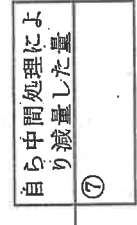 自ら中間処理によ
り減量した量
⑦